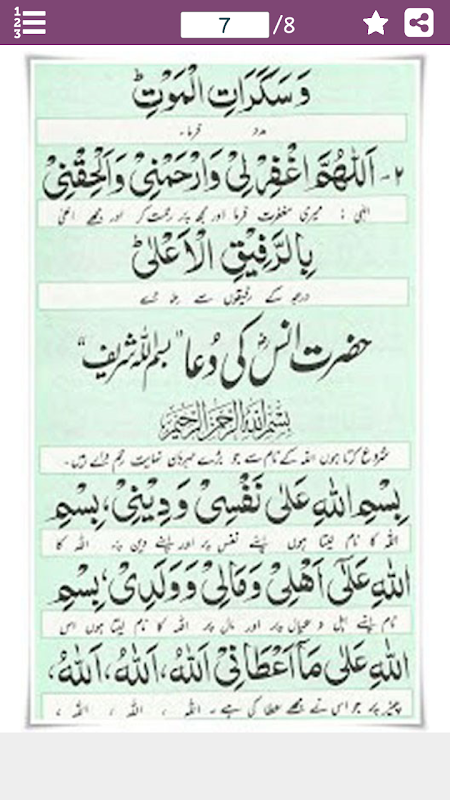 1
2
3
7 /8
وَسَكَرَاتِ الْمَوْتِ ط
مدد فرما۔
۲- اَللّٰهُمَّ اغْفِرْ لِیْ وَارْحَمْنِیْ وَاَلْحِقْنِیْ
الٰہی : میری مغفرت فرما اور مجھ پر رحمت کر اور مجھے اعلیٰ
بِالرَّفِیْقِ الْاَعْلٰی ط
درجہ کے رفیقوں سے ملا دے
حضرت انسؓ کی دُعا "بسم اللہ شریف"
بِسْمِ اللهِ الرَّحْمٰنِ الرَّحِيْمِ
شروع کرتا ہوں اللہ کے نام سے جو بڑے مہربان نہایت رحم والے ہیں۔
بِسْمِ اللهِ عَلٰی نَفْسِیْ وَدِیْنِیْ، بِسْمِ
اللہ کا نام لیتا ہوں اپنے نفس پر اور اپنے دین پر۔ اللہ کا
اللهِ عَلٰٓی اَهْلِیْ وَمَالِیْ وَوَلَدِیْ، بِسْمِ
نام اپنے اہل و عیال پر اور مال پر اللہ کا نام لیتا ہوں اس
اللهِ عَلٰی مَآ اَعْطَانِیْ اَللهُ، اَللهُ، اَللهُ،
چیز پر جو اس نے مجھے عطا کی ہے ۔ اللہ ، اللہ ، اللہ ،